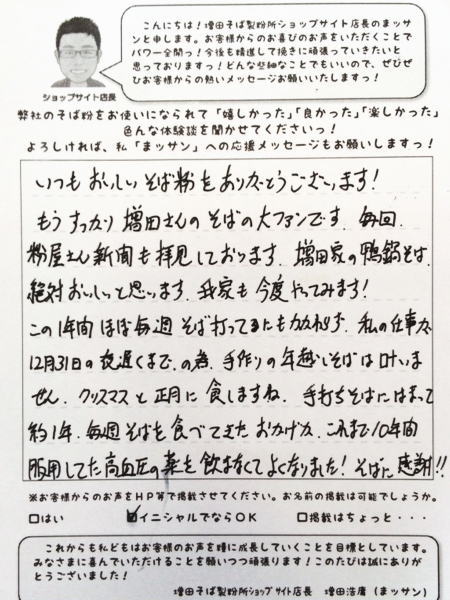 こんにちは！増田そば製粉所ショップサイト店長のまッサ
ンと申します。お客様からのお喜びのお声をいただくことで
パワー全開っ！今後も精進して挽きに頑張っていきたいと
思っておりますっ！どんな些細なことでもいいので、ぜひぜ
ひお客様からの熱いメッセージお願いいたしますっ！
ショップサイト店長
弊社のそば粉をお使いになられて「嬉しかった」「良かった」「楽しかった」
色んな体験談を聞かせてくださいっ！
よろしければ、私「まッサン」への応援メッセージもお願いしますっ！
いつもおいしいそば粉をありがとうございます！
もうすっかり増田さんのそばの大ファンです。毎回、
粉屋さん新聞も拝見しております。増田家の鴨鍋そば、
絶対おいしいっと思います。我家も今度やってみます！
この1年間ほぼ毎週そば打ってるにもかかわらず、私の仕事が
12月31日の夜遅くまで、の為、手作りの年越しそばは叶いま
せん。クリスマスと正月に食しますね。手打ちそばにはまって
約1年、毎週そばを食べてきたおかげか、これまで10年間
服用してた高血圧の薬を飲まなくてよくなりました！そばに感謝!!
※お客様からのお声をHP等で掲載させてください。お名前の掲載は可能でしょうか。
□はい ☑イニシャルでならOK □掲載はちょっと・・・
これからも私どもはお客様のお声を糧に成長していくことを目標としています。
みなさまに喜んでいただけることを願いつつ頑張ります！このたびは誠にありが
とうございました！
増田そば製粉所ショップサイト店長 増田浩庸（まッサン）